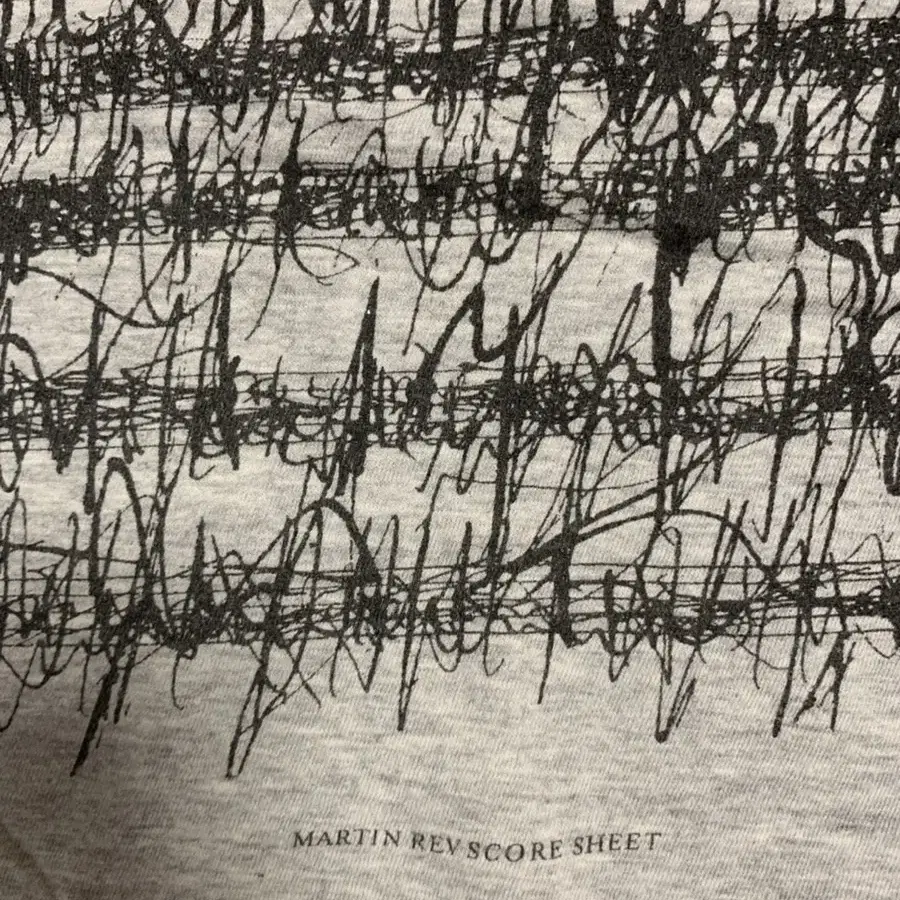 MARTIN REV SCORE SHEET